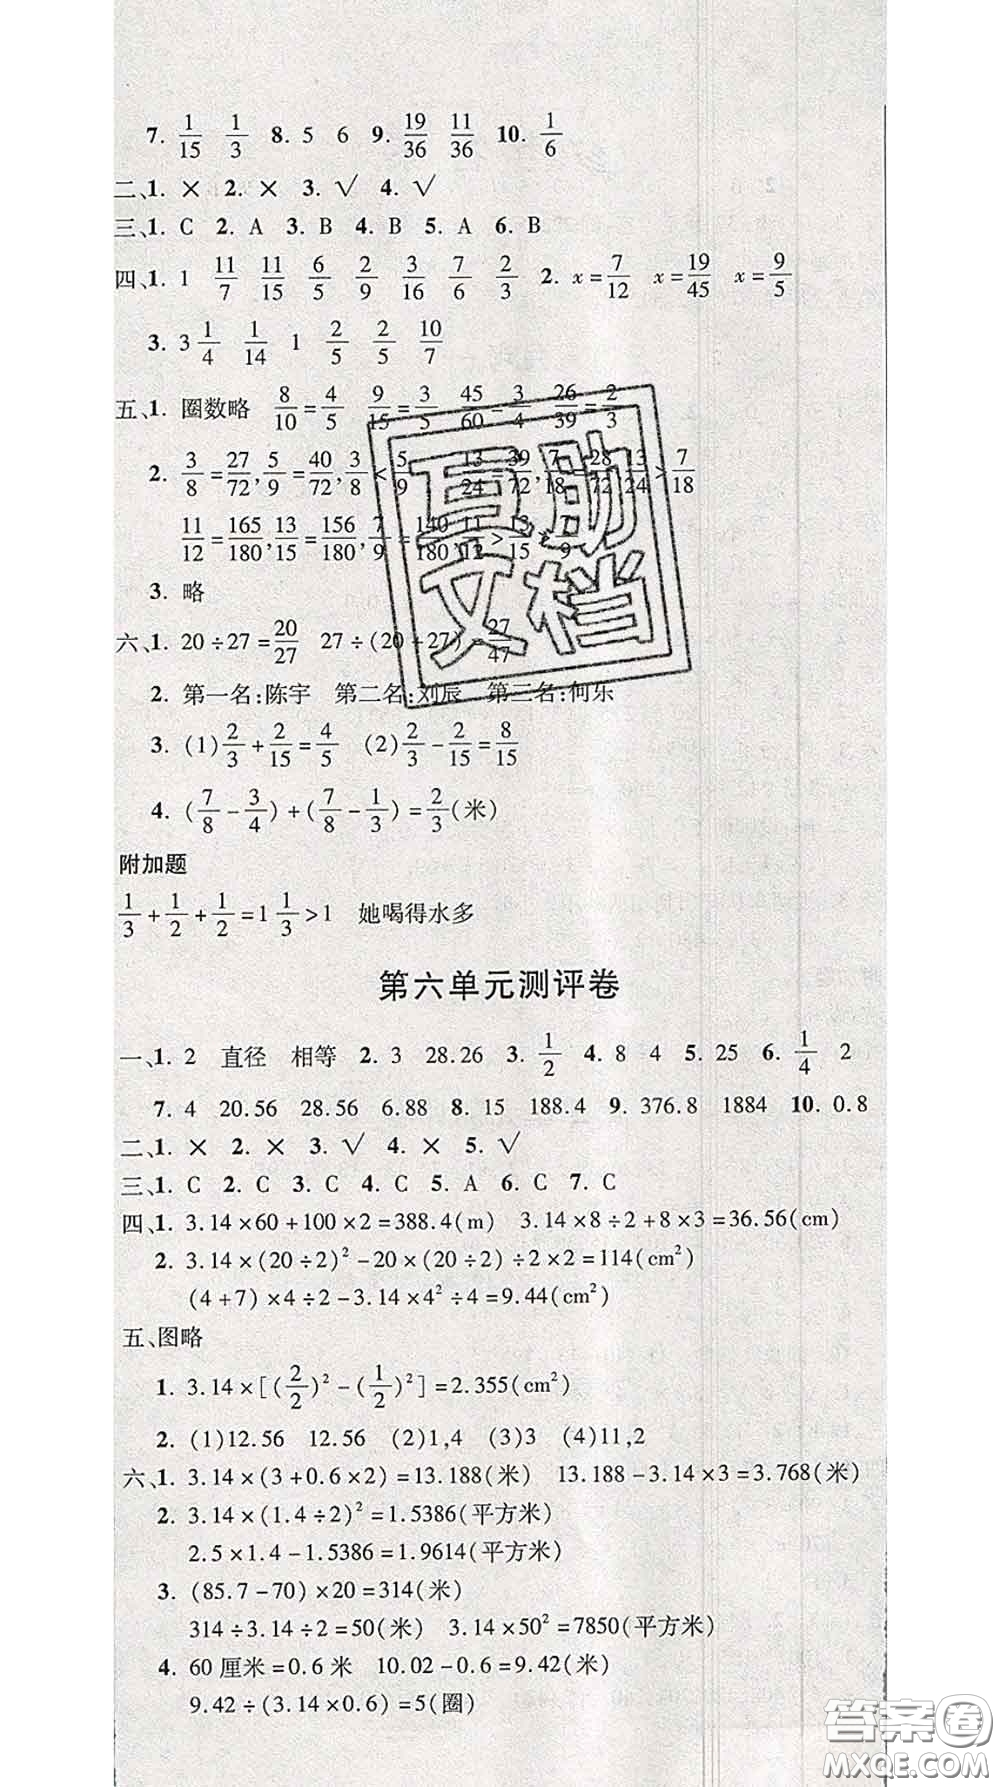 7. 1/15 1/3 8. 5 6 9. 19/36 11/36 10. 1/6
二、1. × 2. × 3. √ 4. √
三、1. C 2. A 3. B 4. B 5. A 6. B
四、1. 1 11/7 11/15 6/5 2/9 3/16 7/6 2/3 2. x=7/12 x=19/45 x=9/5
3. 3 1/4 1/14 1 2/5 2/5 10/7
五、1. 圈数略 8/10=4/5 9/15=3/5 45/60=3/4 26/39=2/3
2. 3/8=27/72,5/9=40/72,3/8<5/9 13/24=39/72,7/18=28/72,13/24>7/18
11/12=165/180,13/15=156/180,7/9=140/180,11/12>13/15>7/9
3. 略
六、1. 20÷27=20/27 27÷(20+27)=27/47
2. 第一名:陈宇 第二名:刘辰 第三名:何乐
3. (1)2/3+2/15=4/5 (2)2/3-2/15=8/15
4. (7/8-3/4)+(7/8-1/3)=2/3(米)
附加题
1/3+1/2+1/2=1 1/3>1 她喝得水多
第六单元测评卷
一、1. 2 直径 相等 2. 3 28.26 3. 1/2 4. 8 4 5. 25 6. 1/4 2
7. 4 20.56 28.56 6.88 8. 15 188.4 9. 376.8 1884 10. 0.8
二、1. × 2. × 3. √ 4. × 5. √
三、1. C 2. C 3. C 4. C 5. A 6. C 7. C
四、1. 3.14×60+100×2=388.4(m) 3.14×8÷2+8×3=36.56(cm)
2. 3.14×(20÷2)²-20×(20÷2)÷2×2=114(cm²)
(4+7)×4÷2-3.14×4²÷4=9.44(cm²)
五、图略
1. 3.14×[(2/2)²-(1/2)²]=2.355(cm²)
2. (1)12.56 12.56 (2)1,4 (3)3 (4)11,2
六、1. 3.14×(3+0.6×2)=13.188(米) 13.188-3.14×3=3.768(米)
2. 3.14×(1.4÷2)²=1.5386(平方米)
2.5×1.4-1.5386=1.9614(平方米)
3. (85.7-70)×20=314(米)
314÷3.14÷2=50(米) 3.14×50²=7850(平方米)
4. 60厘米=0.6米 10.02-0.6=9.42(米)
9.42÷(3.14×0.6)=5(圈)
答案卷
MXQE.COM